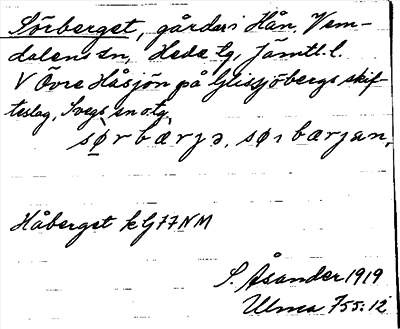 Sörberget, gårdar i Hån, Vem-
dalens sn, Hede tg, Jämtl. l.
V Övre Håsjön på Glissjöbergs skif
teslag, Svegs sn o. tg.
sørbærjə, sørbærjan,
Håberget k G 77 NM
S. Åsander 1919
Ulma 755:12